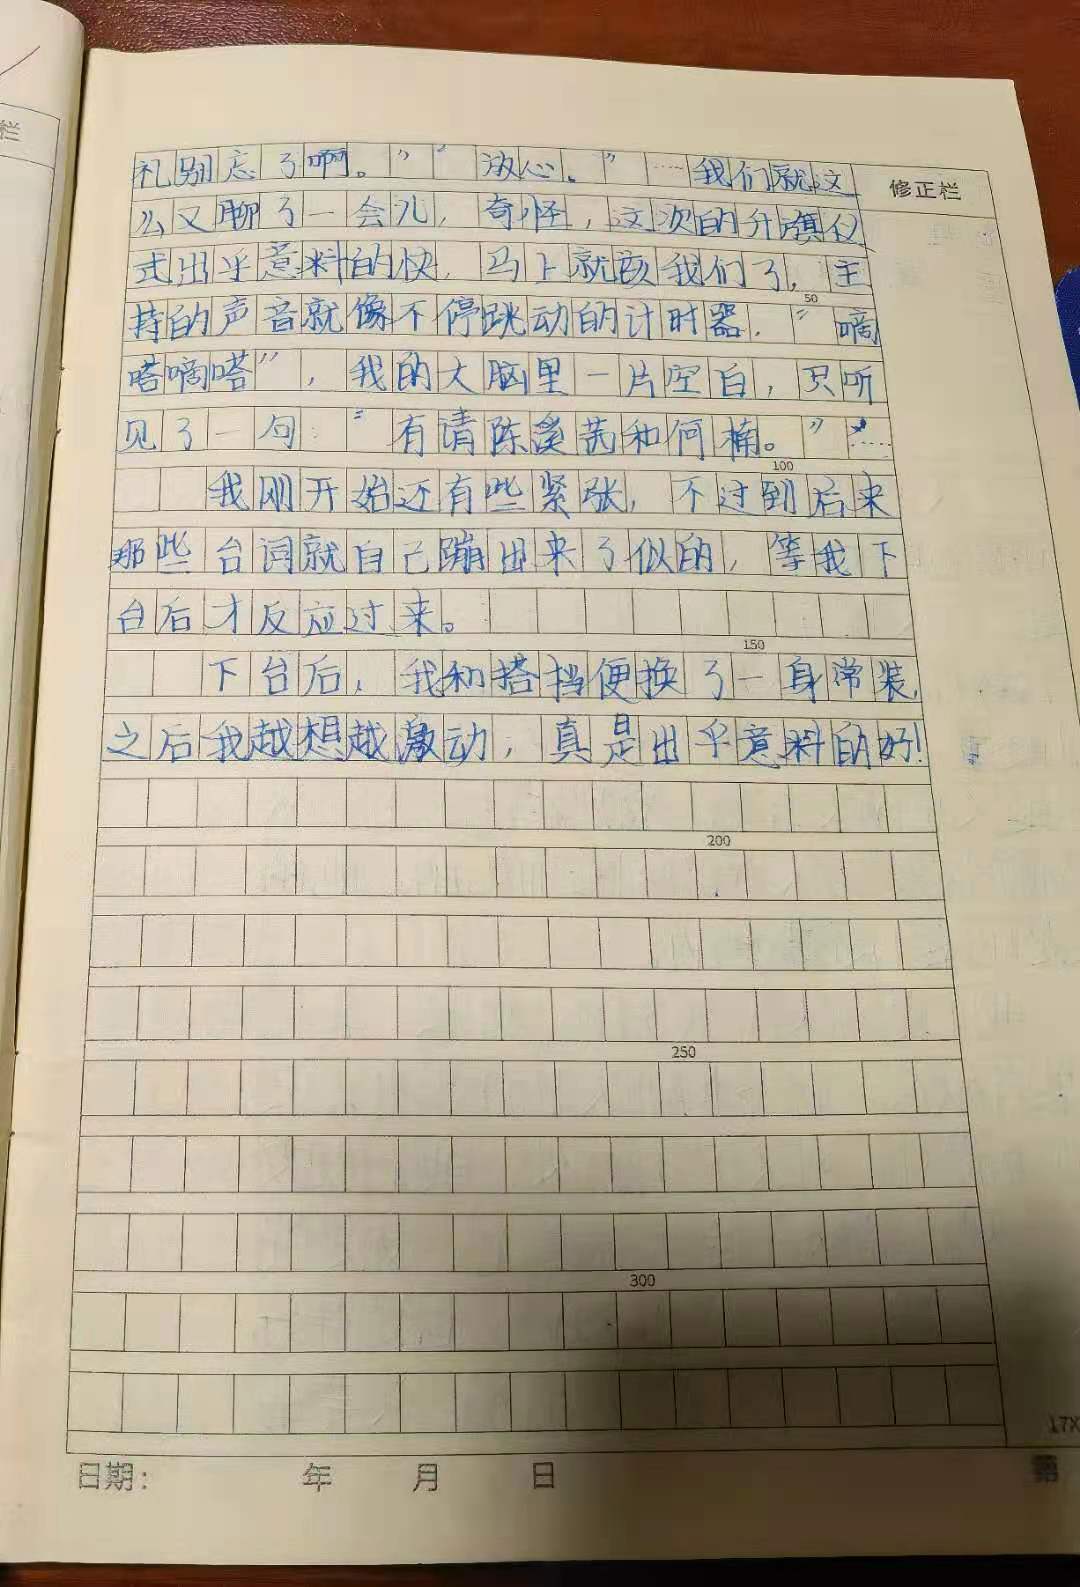 栏
修正栏
礼别忘了啊。”“放心。”……我们就这
么又聊了一会儿，奇怪，这次的升旗仪
式出乎意料的快，马上就该我们了，主
50
持的声音就像不停跳动的计时器，“嘀
嗒嘀嗒”，我的大脑里一片空白，只听
见了一句：“有请陈溪茜和何楠。”……
100
我刚开始还有些紧张，不过到后来
那些台词就自己蹦出来了似的，等我下
台后才反应过来。
150
下台后，我和搭挡便换了一身常装，
之后我越想越激动，真是出乎意料的好！
200
250
300
17X
日期： 年 月 日 第